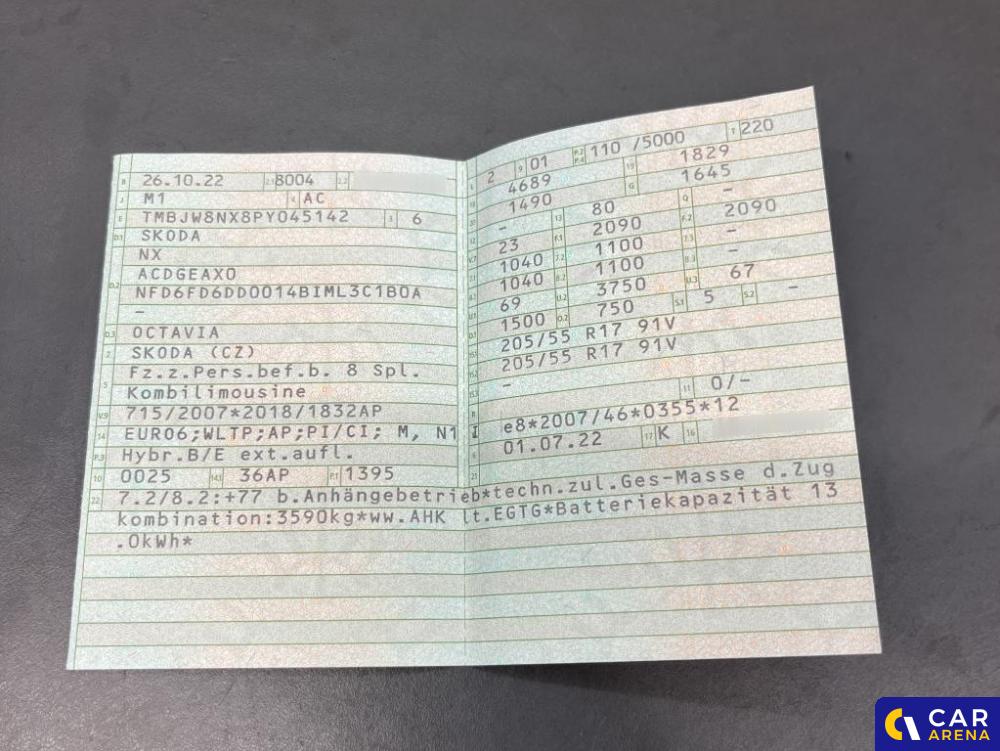 B 26.10.22 2.1 8004 2.2
J M1 4 AC
E TMBJW8NX8PY045142 3 6
D.1 SKODA
NX
D.2 ACDGEAX0
NFD6FD6DD0014BIML3C1B0A
–
D.3 OCTAVIA
2 SKODA (CZ)
5 Fz.z.Pers.bef.b. 8 Spl.
Kombilimousine
V.9 715/2007*2018/1832AP
14 EURO6;WLTP;AP;PI/CI; M, N1 I
P.3 Hybr.B/E ext.aufl.
10 0025 14.1 36AP P.1 1395
22 7.2/8.2:+77 b.Anhängebetrieb*techn.zul.Ges-Masse d.Zug
kombination:3590kg*ww.AHK lt.EGTG*Batteriekapazität 13
.0kWh*
L 2 9 01 P.2 P.4 110 /5000 T 220
18 4689 19 1829
20 1490 G 1645
12 – 13 80 Q –
V.7 23 F.1 2090 F.2 2090
7.1 1040 7.2 1100 7.3 –
8.1 1040 8.2 1100 8.3 –
U.1 69 U.2 3750 U.3 67
O.1 1500 O.2 750 S.1 5 S.2 –
15.1 205/55 R17 91V
15.2 205/55 R17 91V
15.3 –
R 11 0/–
K e8*2007/46*0355*12
6 01.07.22 17 K 16
21
CAR
ARENA